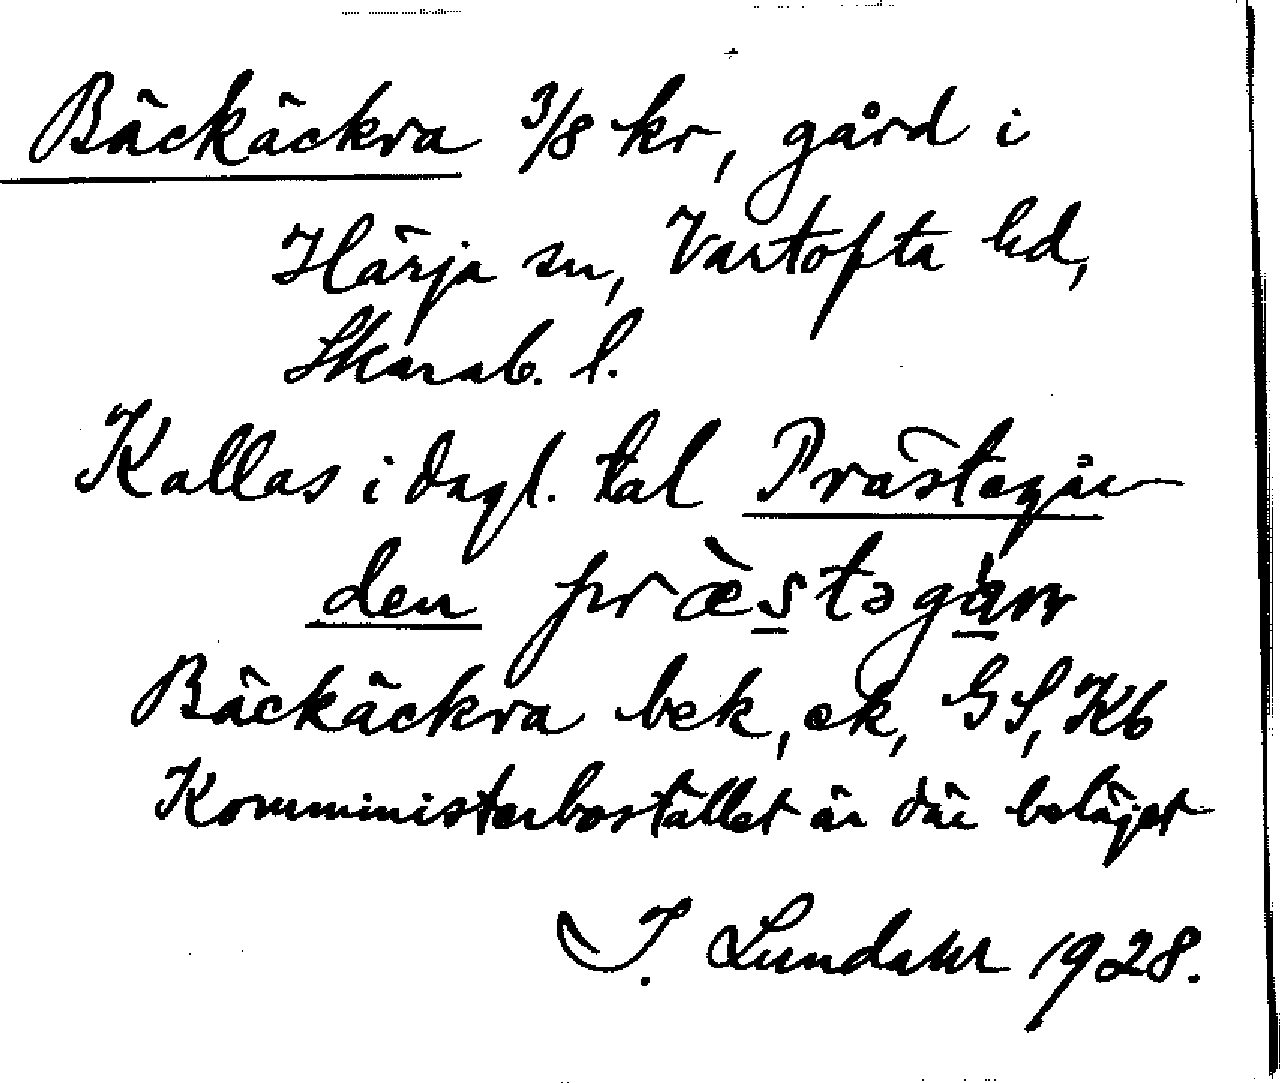 Bäckäckra 3/8 kr, gård i
Härja sn, Vartofta hd,
Skarab. l.
Kallas i dagl. tal Prästegår
den præ̀stəgɑr
Bäckäckra bek, ek, GS, Kb
Komministerbostället är där beläget
I. Lundahl 1928.